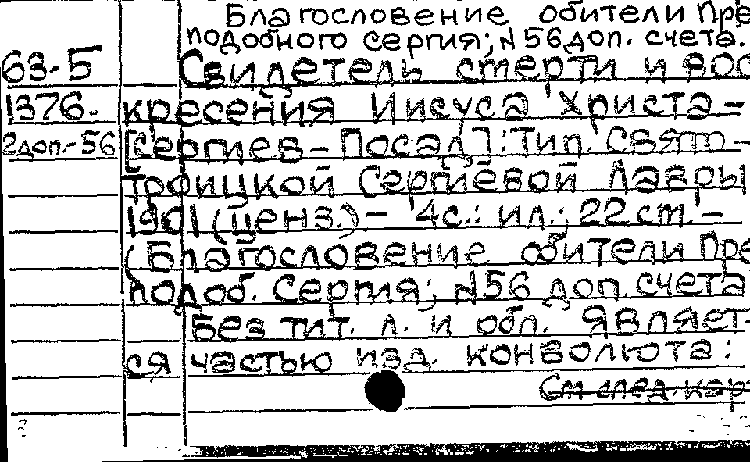 Благословение обители Пре
подобного Сергия; N 56 доп. счета.
63-Б
1376.
2доп.-56
Свидетель смерти и вос
кресения Иисуса Христа –
[Сергиев – Посад]: Тип. Свято –
Троицкой Сергиевой Лавры
1901 (ценз.) – 4с.: ил.; 22 см. –
(Благословение обители Пре
подоб. Сергия; N56 доп. счета
Без тит. л. и обл. Являет-
ся частью изд. конволюта:
См след. кар